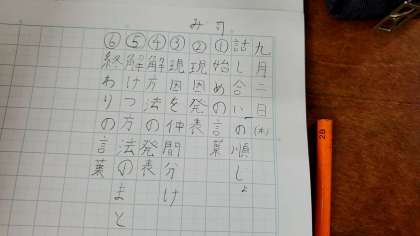 九月二日(木)
話し合いの順しょ
①始めの言葉
②現因発表
③現因を仲間分け
④解方法の発表
⑤解けつ方法のまと
⑥終わりの言葉